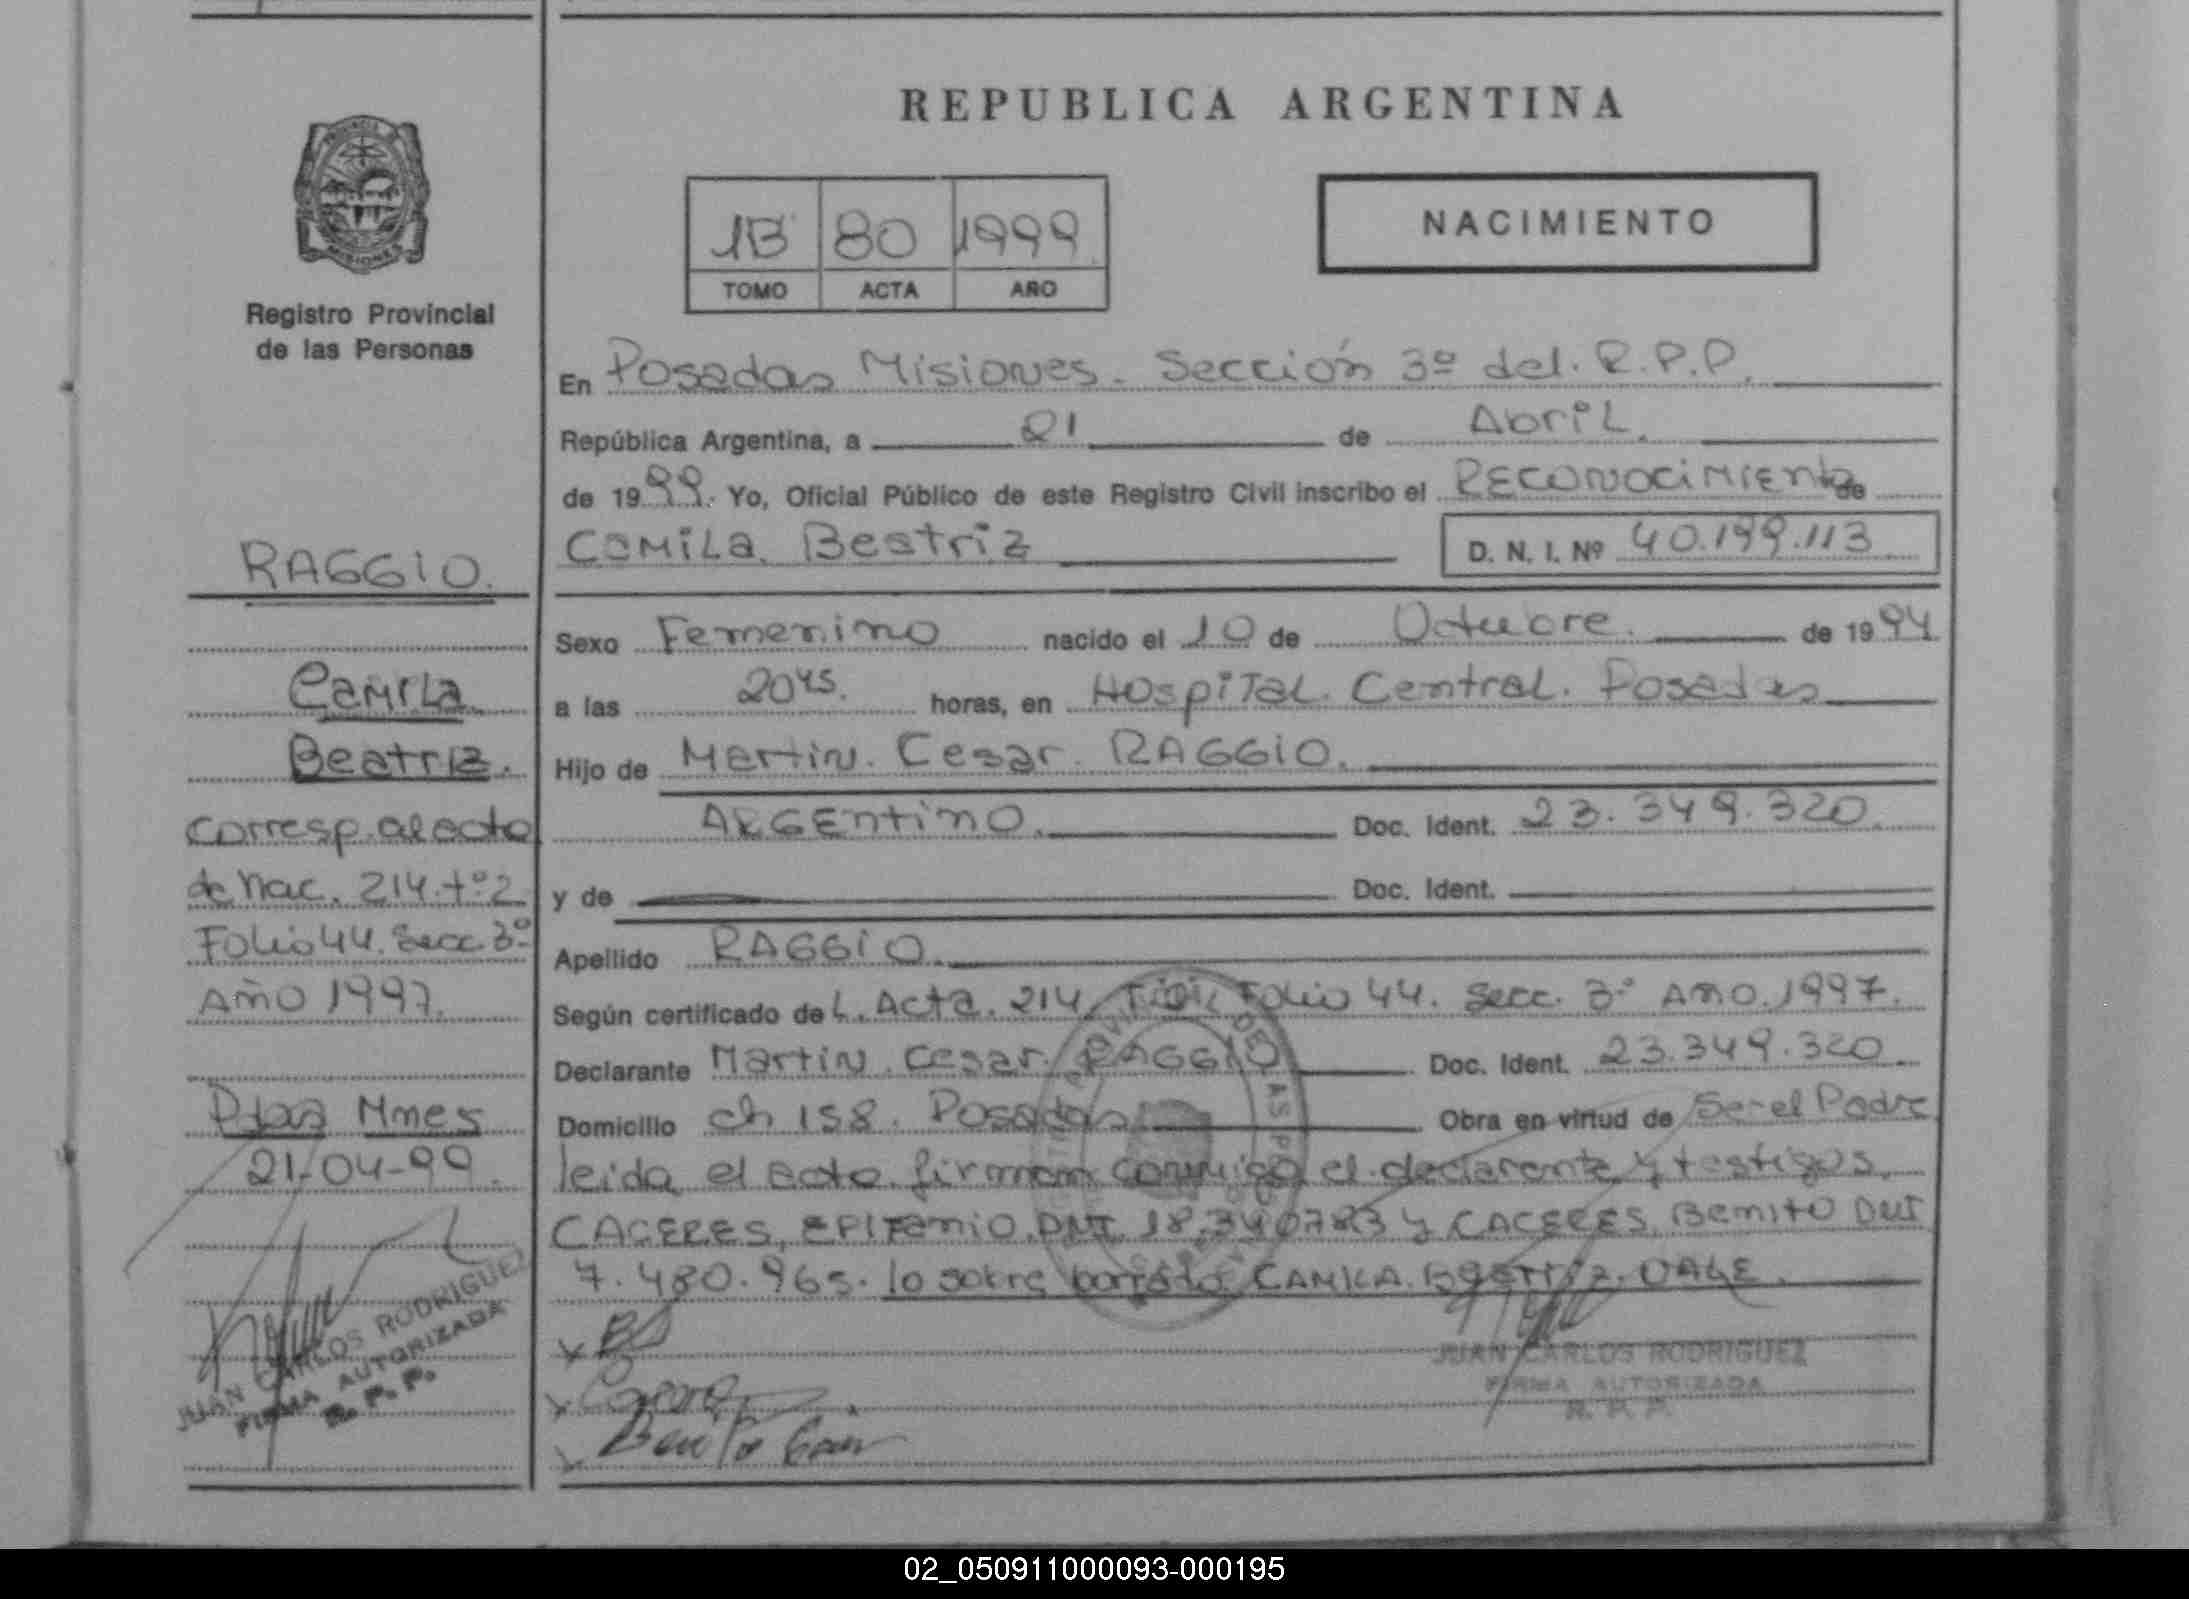 REPUBLICA ARGENTINA
PROVINCIA DE
MISIONES
Registro Provincial
de las Personas
1B 80 1999
TOMO ACTA AÑO
NACIMIENTO
En Posadas Misiones. Sección 3º del. R.P.P.
República Argentina, a 21 de Abril.
de 1999. Yo, Oficial Público de este Registro Civil inscribo el Reconocimiento de
Camila Beatriz
D. N. I. Nº 40.199.113
Sexo Femenino nacido el 10 de Octubre. de 1994
a las 20 45. horas, en Hospital. Central. Posadas
Hijo de Martin. Cesar. RAGGIO.
ARGEntino. Doc. Ident. 23.349.320.
y de Doc. Ident.
Apellido RAGGIO.
Según certificado de L. Acta. 214. Folio 44. Secc. 3º Año. 1997.
Declarante Martin. Cesar. RAGGIO Doc. Ident. 23.349.320
Domicilio ch 158. Posadas. Obra en virtud de Ser el Padre
leida el acta firman conmigo el declarante y testigos.
CACERES, EPIFANIO. DNI. 18.340783 y CACERES, Benito DNI
7.480.965. lo sobre borrado CAMILA. Beatriz. VALE.
JUAN CARLOS RODRIGUEZ
FIRMA AUTORIZADA
R. P. P.
RAGGIO.
Camila
Beatriz.
Corresp. al acta
de Nac. 214. tº 2
Folio 44. Secc. 3º
Año 1997.
Pdas Mnes
21-04-99.
JUAN CARLOS RODRIGUEZ
FIRMA AUTORIZADA
R. P. P.
02_050911000093-000195